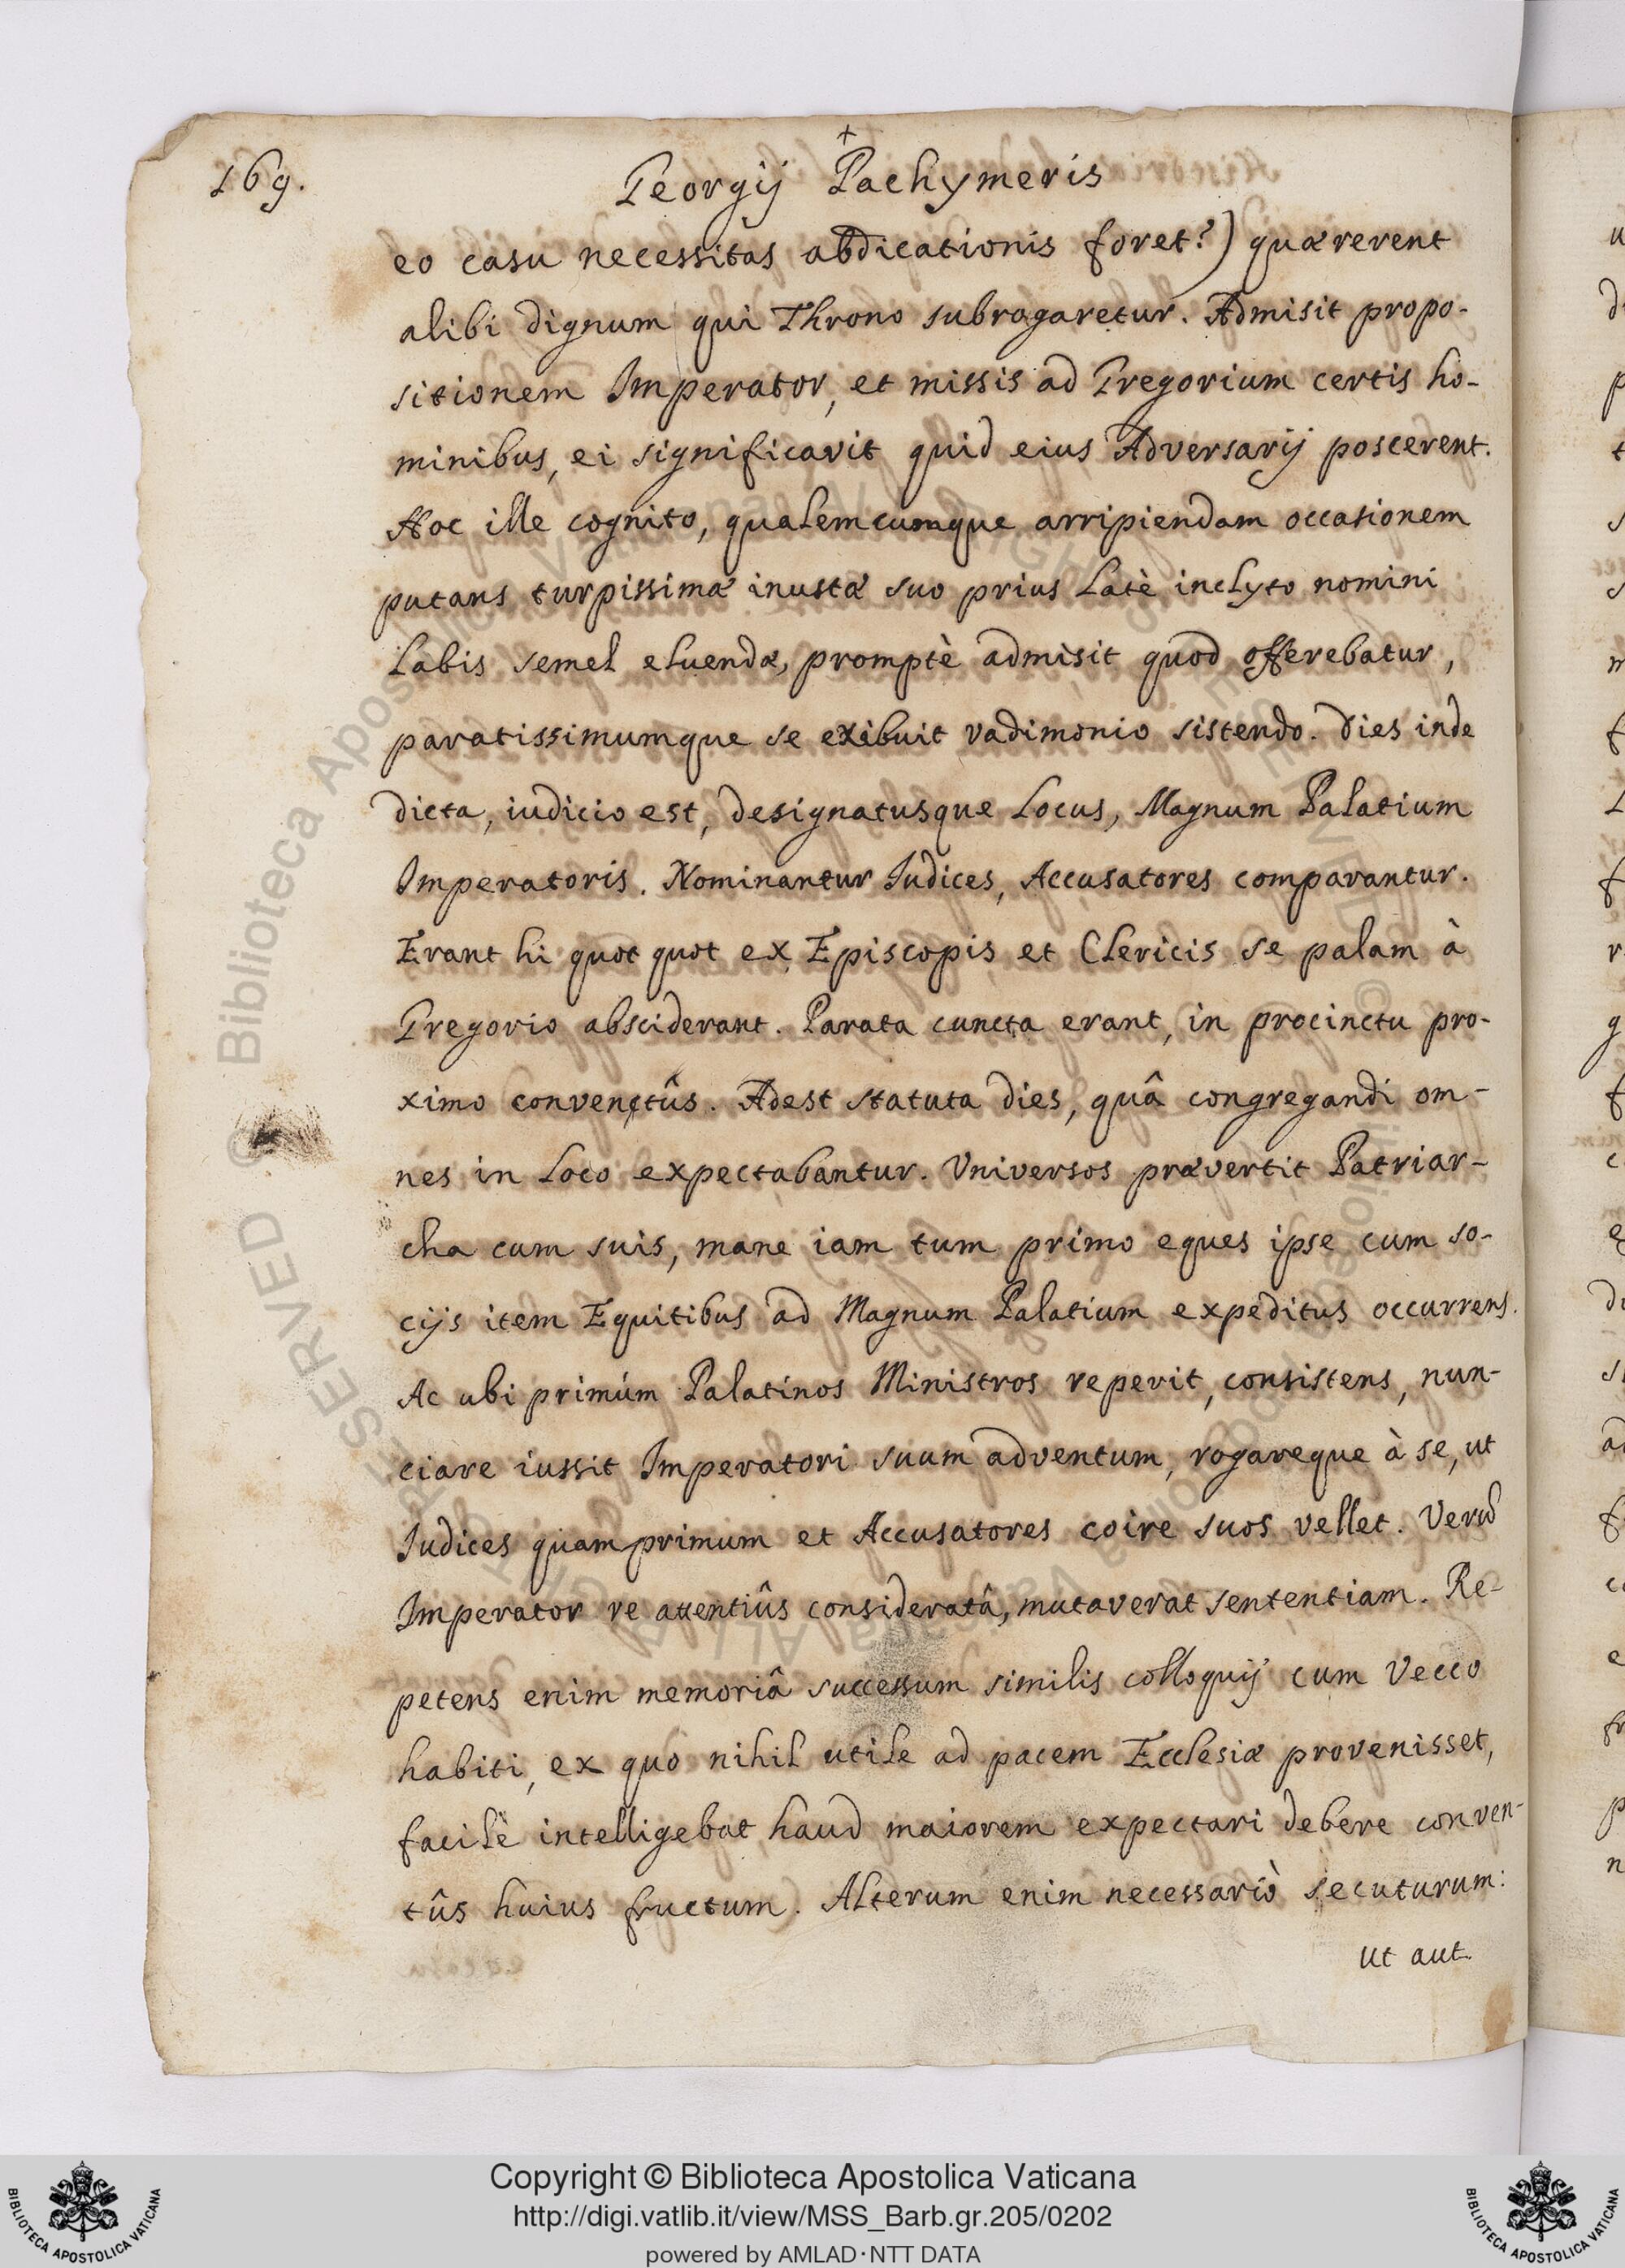 169.
Georgij Pachymeris
eo casu necessitas abdicationis foret?) quærerent
alibi dignum qui Throno subrogaretur. Admisit propo-
sitionem Imperator, et missis ad Gregorium certis ho-
minibus, ei significavit quid eius Adversarij poscerent.
Hoc ille cognito, qualemcumque arripiendam occasionem
putans turpissimæ inustæ suo prius latè inclyto nomini
labis semel eluendæ, promptè admisit quod offerebatur,
paratissimumque se exibuit vadimonio sistendo. Dies inde
dicta, iudicio est, designatusque locus, Magnum Palatium
Imperatoris. Nominantur Iudices, Accusatores comparantur.
Erant hi quot quot ex Episcopis et Clericis se palam à
Gregorio absciderant. Parata cuncta erant, in procinctu pro-
ximo conventûs. Adest statuta dies, quâ congregandi om-
nes in loco expectabantur. Universos prævertit Patriar-
cha cum suis, mane iam tum primo eques ipse cum so-
cijs item Equitibus ad Magnum Palatium expeditus occurrens.
Ac ubi primúm Palatinos Ministros reperit, consistens, nun-
ciare iussit Imperatori suum adventum, rogareque à se, ut
Iudices quamprimum et Accusatores coire suos vellet. Verũ
Imperator re attentiûs consideratâ, mutaverat sententiam. Re-
petens enim memoriâ successum similis colloquij cum Vecco
habiti, ex quo nihil utile ad pacem Ecclesiæ provenisset,
facilè intelligebat, haud maiorem expectari debere conven-
tûs huius fructum. Alterum enim necessariò secuturum:
ut aut
Copyright © Biblioteca Apostolica Vaticana
http://digi.vatlib.it/view/MSS_Barb.gr.205/0202
powered by AMLAD·NTT DATA
BIBLIOTECA APOSTOLICA VATICANA
BIBLIOTECA APOSTOLICA VATICANA